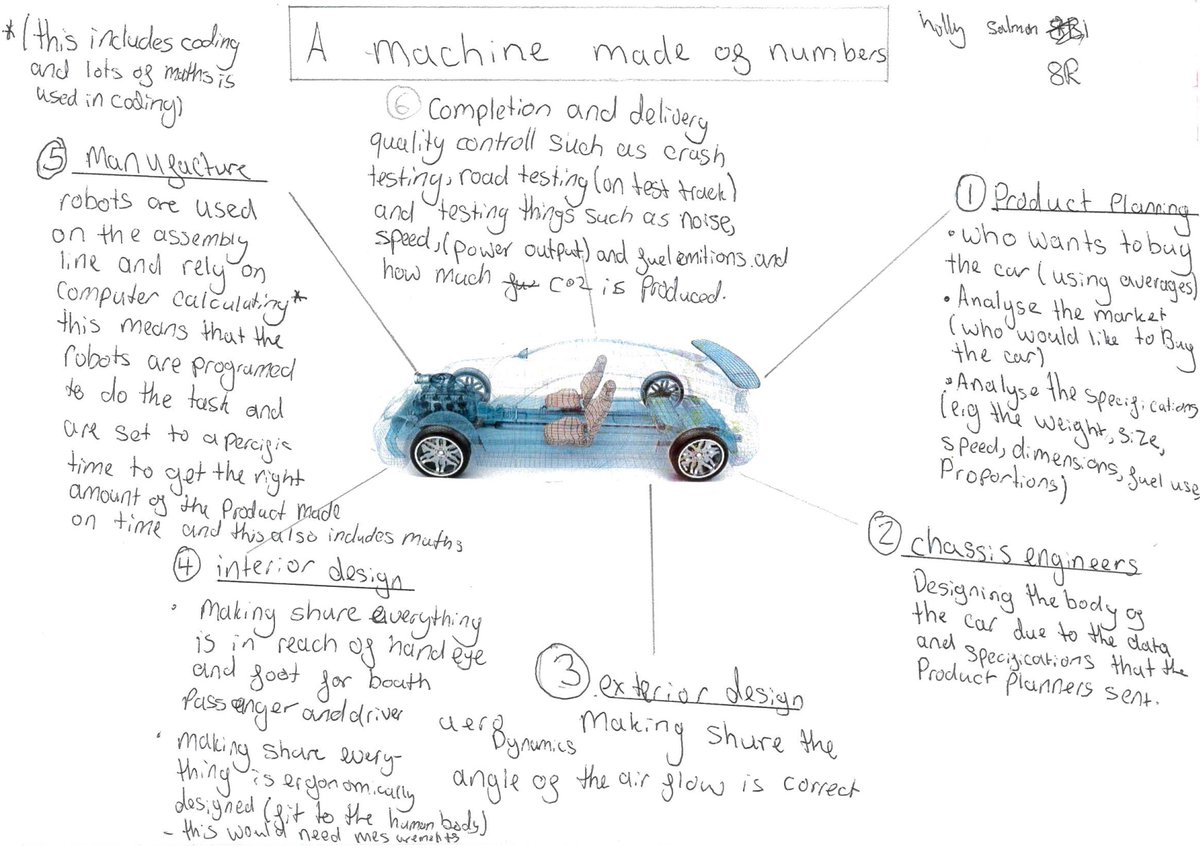 A machine made of numbers
holly salmon
8R
*(this includes coding
and lots of maths is
used in coding)
① Product Planning
• who wants to buy
the car (using averages)
• Analyse the market
(who would like to Buy
the car)
• Analyse the specifications
(e.g the weight, size,
speed, dimensions, fuel use,
Proportions)
② chassis engineers
Designing the body of
the car due to the data
and specifications that the
Product Planners sent.
③ exterior design
Making shure the
aero
Dynamics
angle of the air flow is correct
④ interior design
• Making shure everything
is in reach of hand eye
and foot for boath
Passenger and driver
• Making share every-
thing is ergonomically
designed (fit to the human body)
- this would need mesurements
⑤ Manufacture
robots are used
on the assembly
line and rely on
computer calculating*
this means that the
robots are programed
to do the task and
are set to a percific
time to get the right
amount of the Product made
on time and this also includes maths
⑥ Completion and delivery
quality controll such as crash
testing, road testing (on test track)
and testing things such as noise,
speed, (power output) and fuel emitions. and
how much CO2 is Produced.